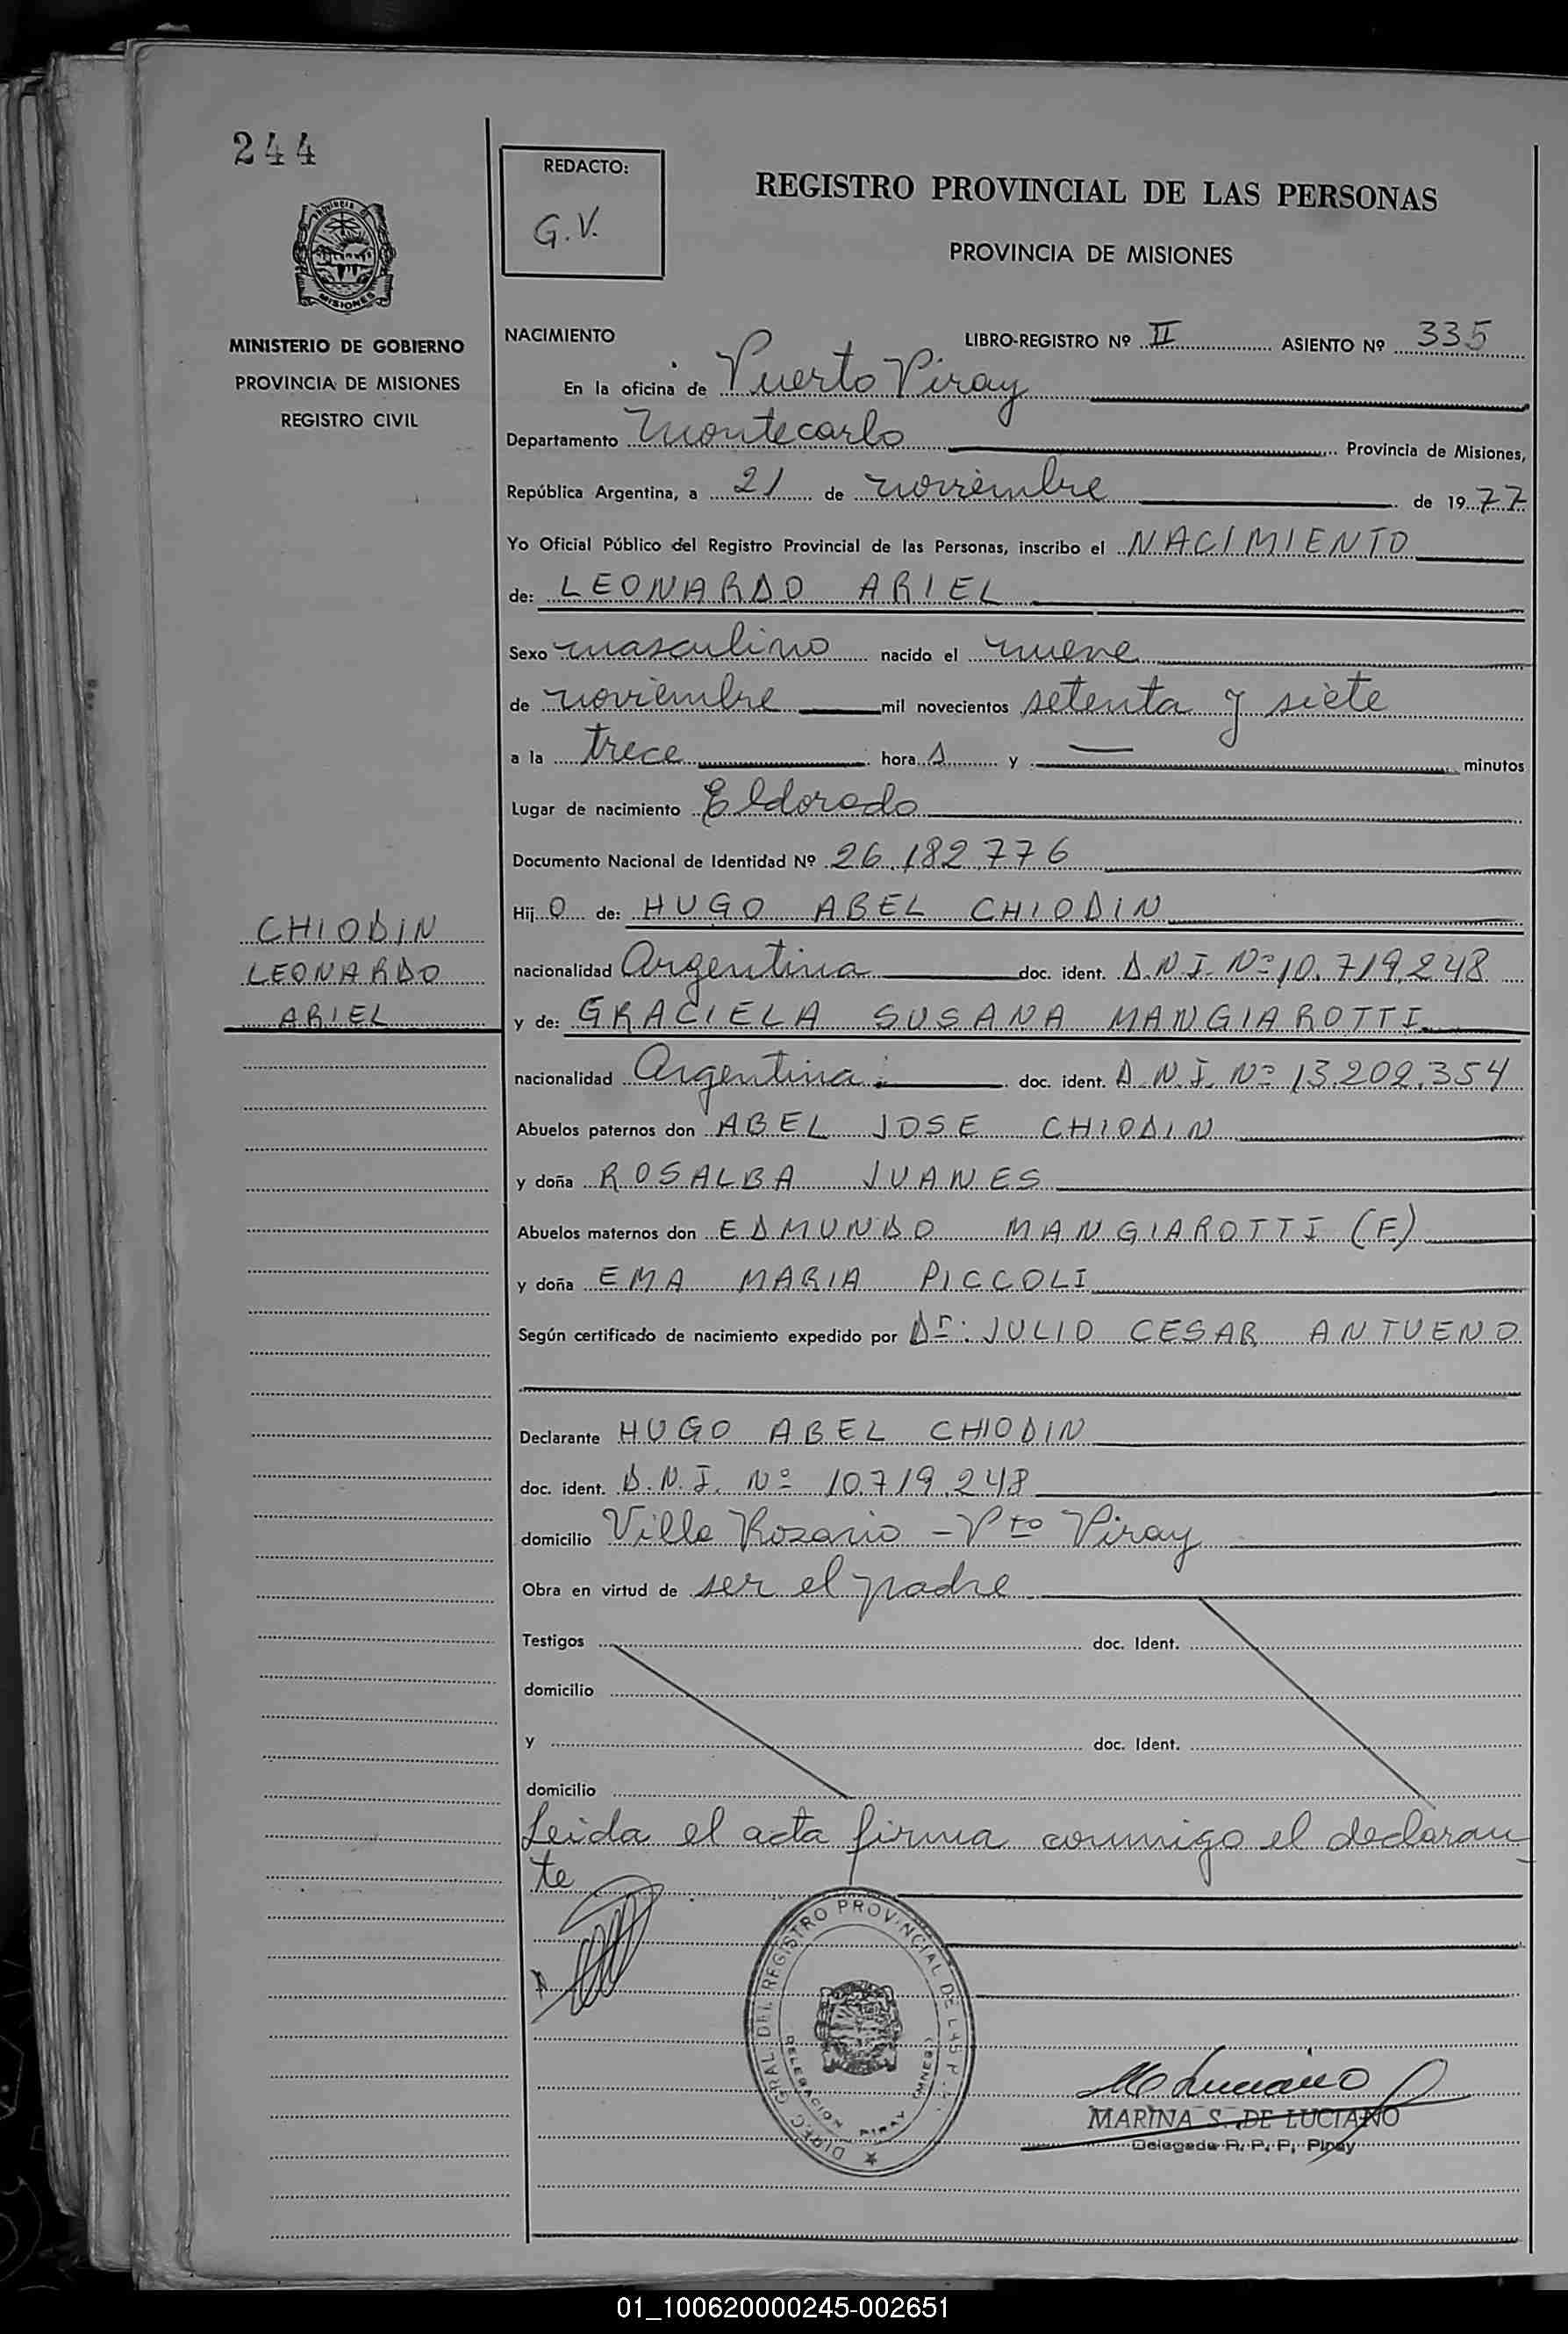 244
REDACTO:
G.V.
REGISTRO PROVINCIAL DE LAS PERSONAS
PROVINCIA DE MISIONES
MISIONES
MINISTERIO DE GOBIERNO
PROVINCIA DE MISIONES
REGISTRO CIVIL
NACIMIENTO LIBRO-REGISTRO Nº II ASIENTO Nº 335
En la oficina de Puerto Piray
Departamento Montecarlo Provincia de Misiones,
República Argentina, a 21 de noviembre de 1977
Yo Oficial Público del Registro Provincial de las Personas, inscribo el NACIMIENTO
de: LEONARDO ARIEL
Sexo masculino nacido el nueve
de noviembre mil novecientos setenta y siete
a la trece hora s y — minutos
Lugar de nacimiento Eldorado
Documento Nacional de Identidad Nº 26.182.776
Hij o de: HUGO ABEL CHIODIN
CHIODIN
LEONARDO
ARIEL
nacionalidad Argentina doc. ident. D.N.I. Nº 10.719.248
y de: GRACIELA SUSANA MANGIAROTTI
nacionalidad Argentina doc. ident. D.N.I. Nº 13.202.354
Abuelos paternos don ABEL JOSE CHIODIN
y doña ROSALBA JUANES
Abuelos maternos don EDMUNDO MANGIAROTTI (F.)
y doña EMA MARIA PICCOLI
Según certificado de nacimiento expedido por Dr. JULIO CESAR ANTUENO
Declarante HUGO ABEL CHIODIN
doc. ident. D.N.I. Nº 10.719.248
domicilio Villa Rosario - Pto Piray
Obra en virtud de ser el padre
Testigos doc. Ident.
domicilio
y doc. Ident.
domicilio
Leida el acta firma conmigo el declaran
te
DIREC. GRAL. DEL REGISTRO PROVINCIAL DE LAS P.
DELEGACION PIRAY (MNES.)
M Luciano
MARINA S. DE LUCIANO
Delegada R. P. P. Piray
01_100620000245-002651